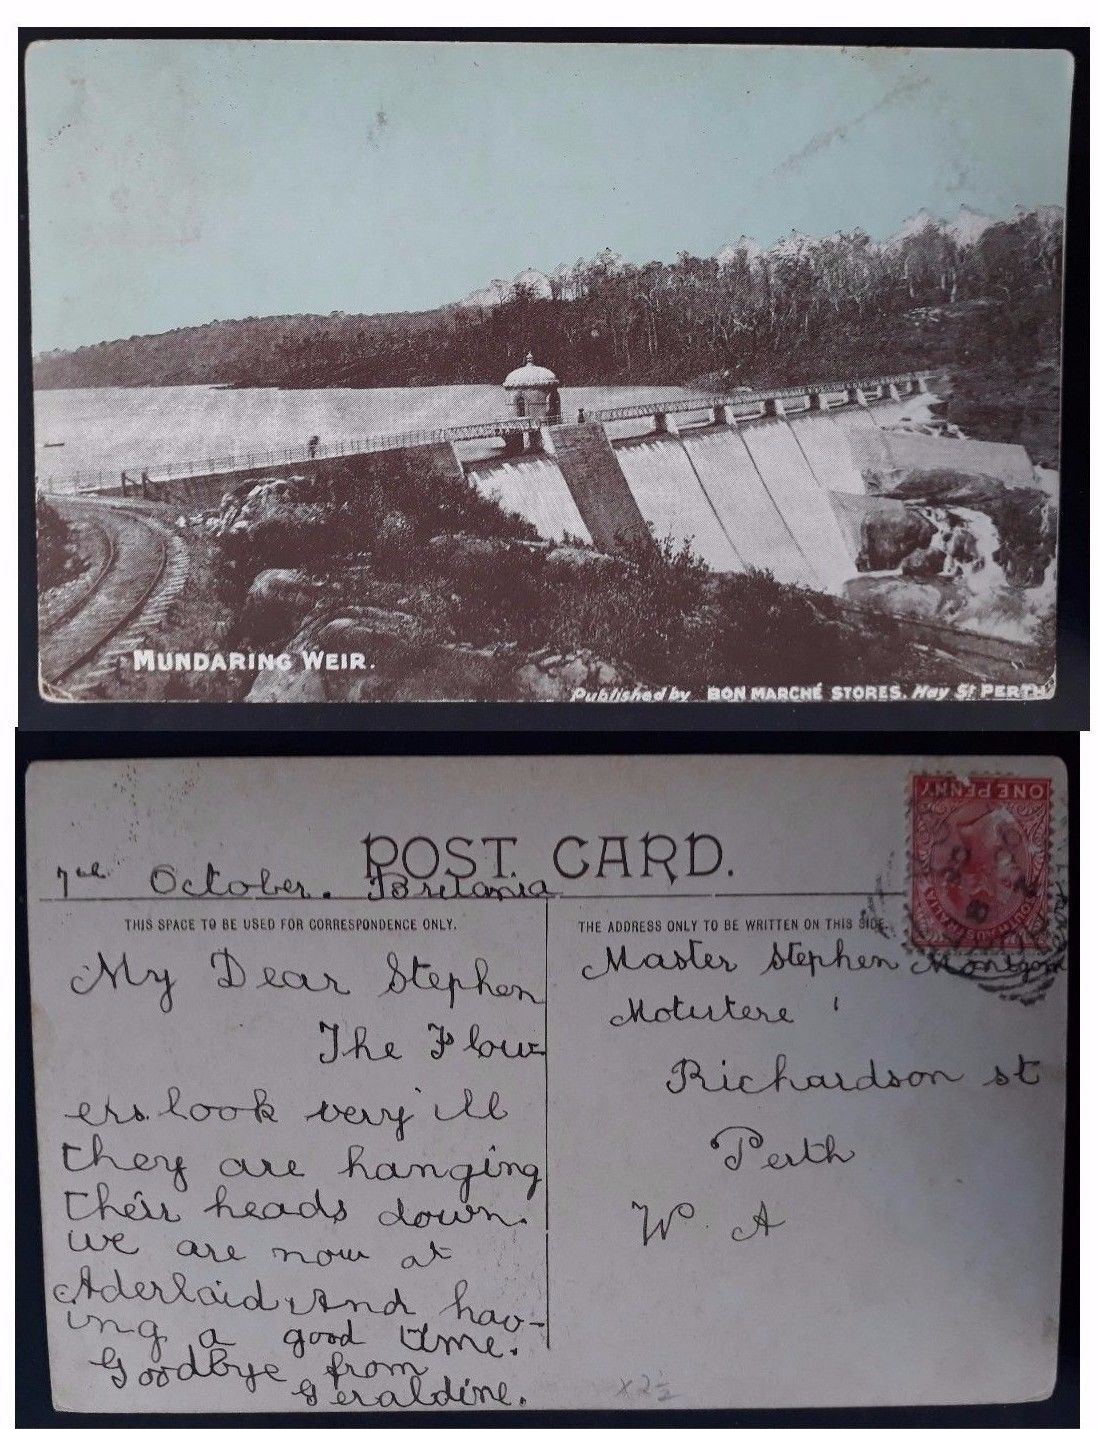 MUNDARING WEIR.
Published by BON MARCHÉ STORES. Hay St PERTH
POST CARD.
ONE PENNY
SOUTH AUSTRALIA
7th October. Britania
THIS SPACE TO BE USED FOR CORRESPONDENCE ONLY.
My Dear Stephen
The Flow-
ers look very ill
they are hanging
their heads down.
we are now at
Aderlaid, And hav-
ing a good time.
Goodbye from
Geraldine.
THE ADDRESS ONLY TO BE WRITTEN ON THIS SIDE.
Master Stephen Montgom
Motutere
Richardson st
Perth
W. A
x2½